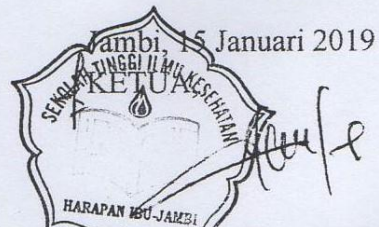 Jambi, 15 Januari 2019
KETUA,
SEKOLAH TINGGI ILMU KESEHATAN
HARAPAN IBU-JAMBI